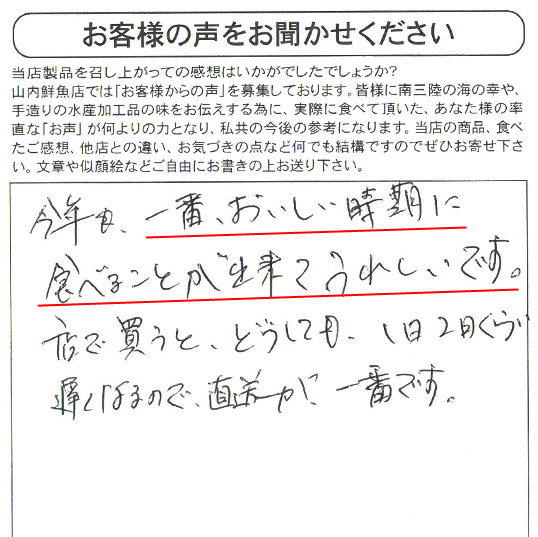 お客様の声をお聞かせください
当店製品を召し上がっての感想はいかがでしたでしょうか?
山内鮮魚店では「お客様からの声」を募集しております。皆様に南三陸の海の幸や、
手造りの水産加工品の味をお伝えする為に、実際に食べて頂いた、あなた様の率
直な「お声」が何よりの力となり、私共の今後の参考になります。当店の商品、食べ
たご感想、他店との違い、お気づきの点など何でも結構ですのでぜひお寄せ下さ
い。文章や似顔絵などご自由にお書きの上お送り下さい。
今年も、一番、おいしい時期に
食べることが出来てうれしいです。
店で買うと、どうしても、1日2日ぐらい
遅くなるので、直送が、一番です。